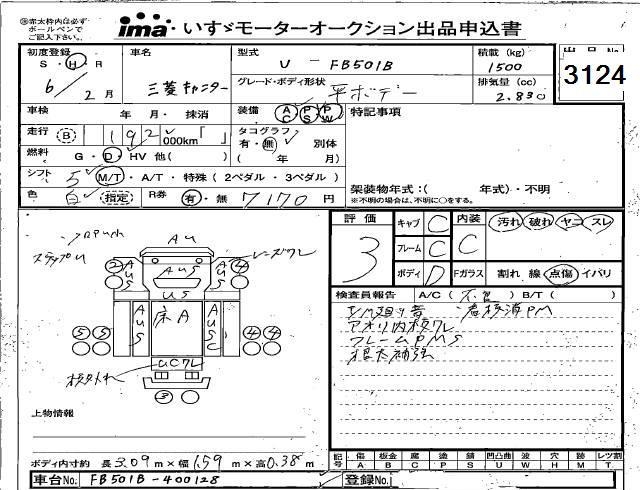 ㊟赤太枠内は必ず
ボールペンで
ご記入下さい。
ima いすゞモーターオークション出品申込書
初度登録
S・H・R
6/2月
車名
三菱キャンター
型式
U - FB501B
グレード・ボディ形状
平ボデー
積載 (kg)
1500
排気量 (cc)
2.830
出品No
3124
車検 年 月・抹消
装備 AC PS PW
特記事項
走行 B 192 000km「 」
タコグラフ
有・無 別体
( 年 月)
燃料 G・D・HV 他( )
シフト 5 M/T・A/T・特殊(2ペダル・3ペダル)
色 白 (指定) R券 有・無 7170円
架装物年式:( 年式)・不明
※不明の場合は、不明に○をする。
評価
3
キャブ C
フレーム C
ボディ D
内装 C
汚れ 破れ ヤニ スレ
Fガラス 割れ 線 点傷 イバリ
検査員報告 A/C(不良) B/T( )
フレームPMS
根太補強
AU
レンズワレ
2 AUS AUS AUS 4
US
AUS 床A AUSC
5 5 4 4
UCワレ
3
上物情報
ボディ内寸約 長3.09m×幅1.59m×高0.38m
記号 傷A 板金B 腐C 塗P 錆S 凹凸曲U 波W 穴H 跡M レツ割T
車台No. FB501B-400128
登録No.